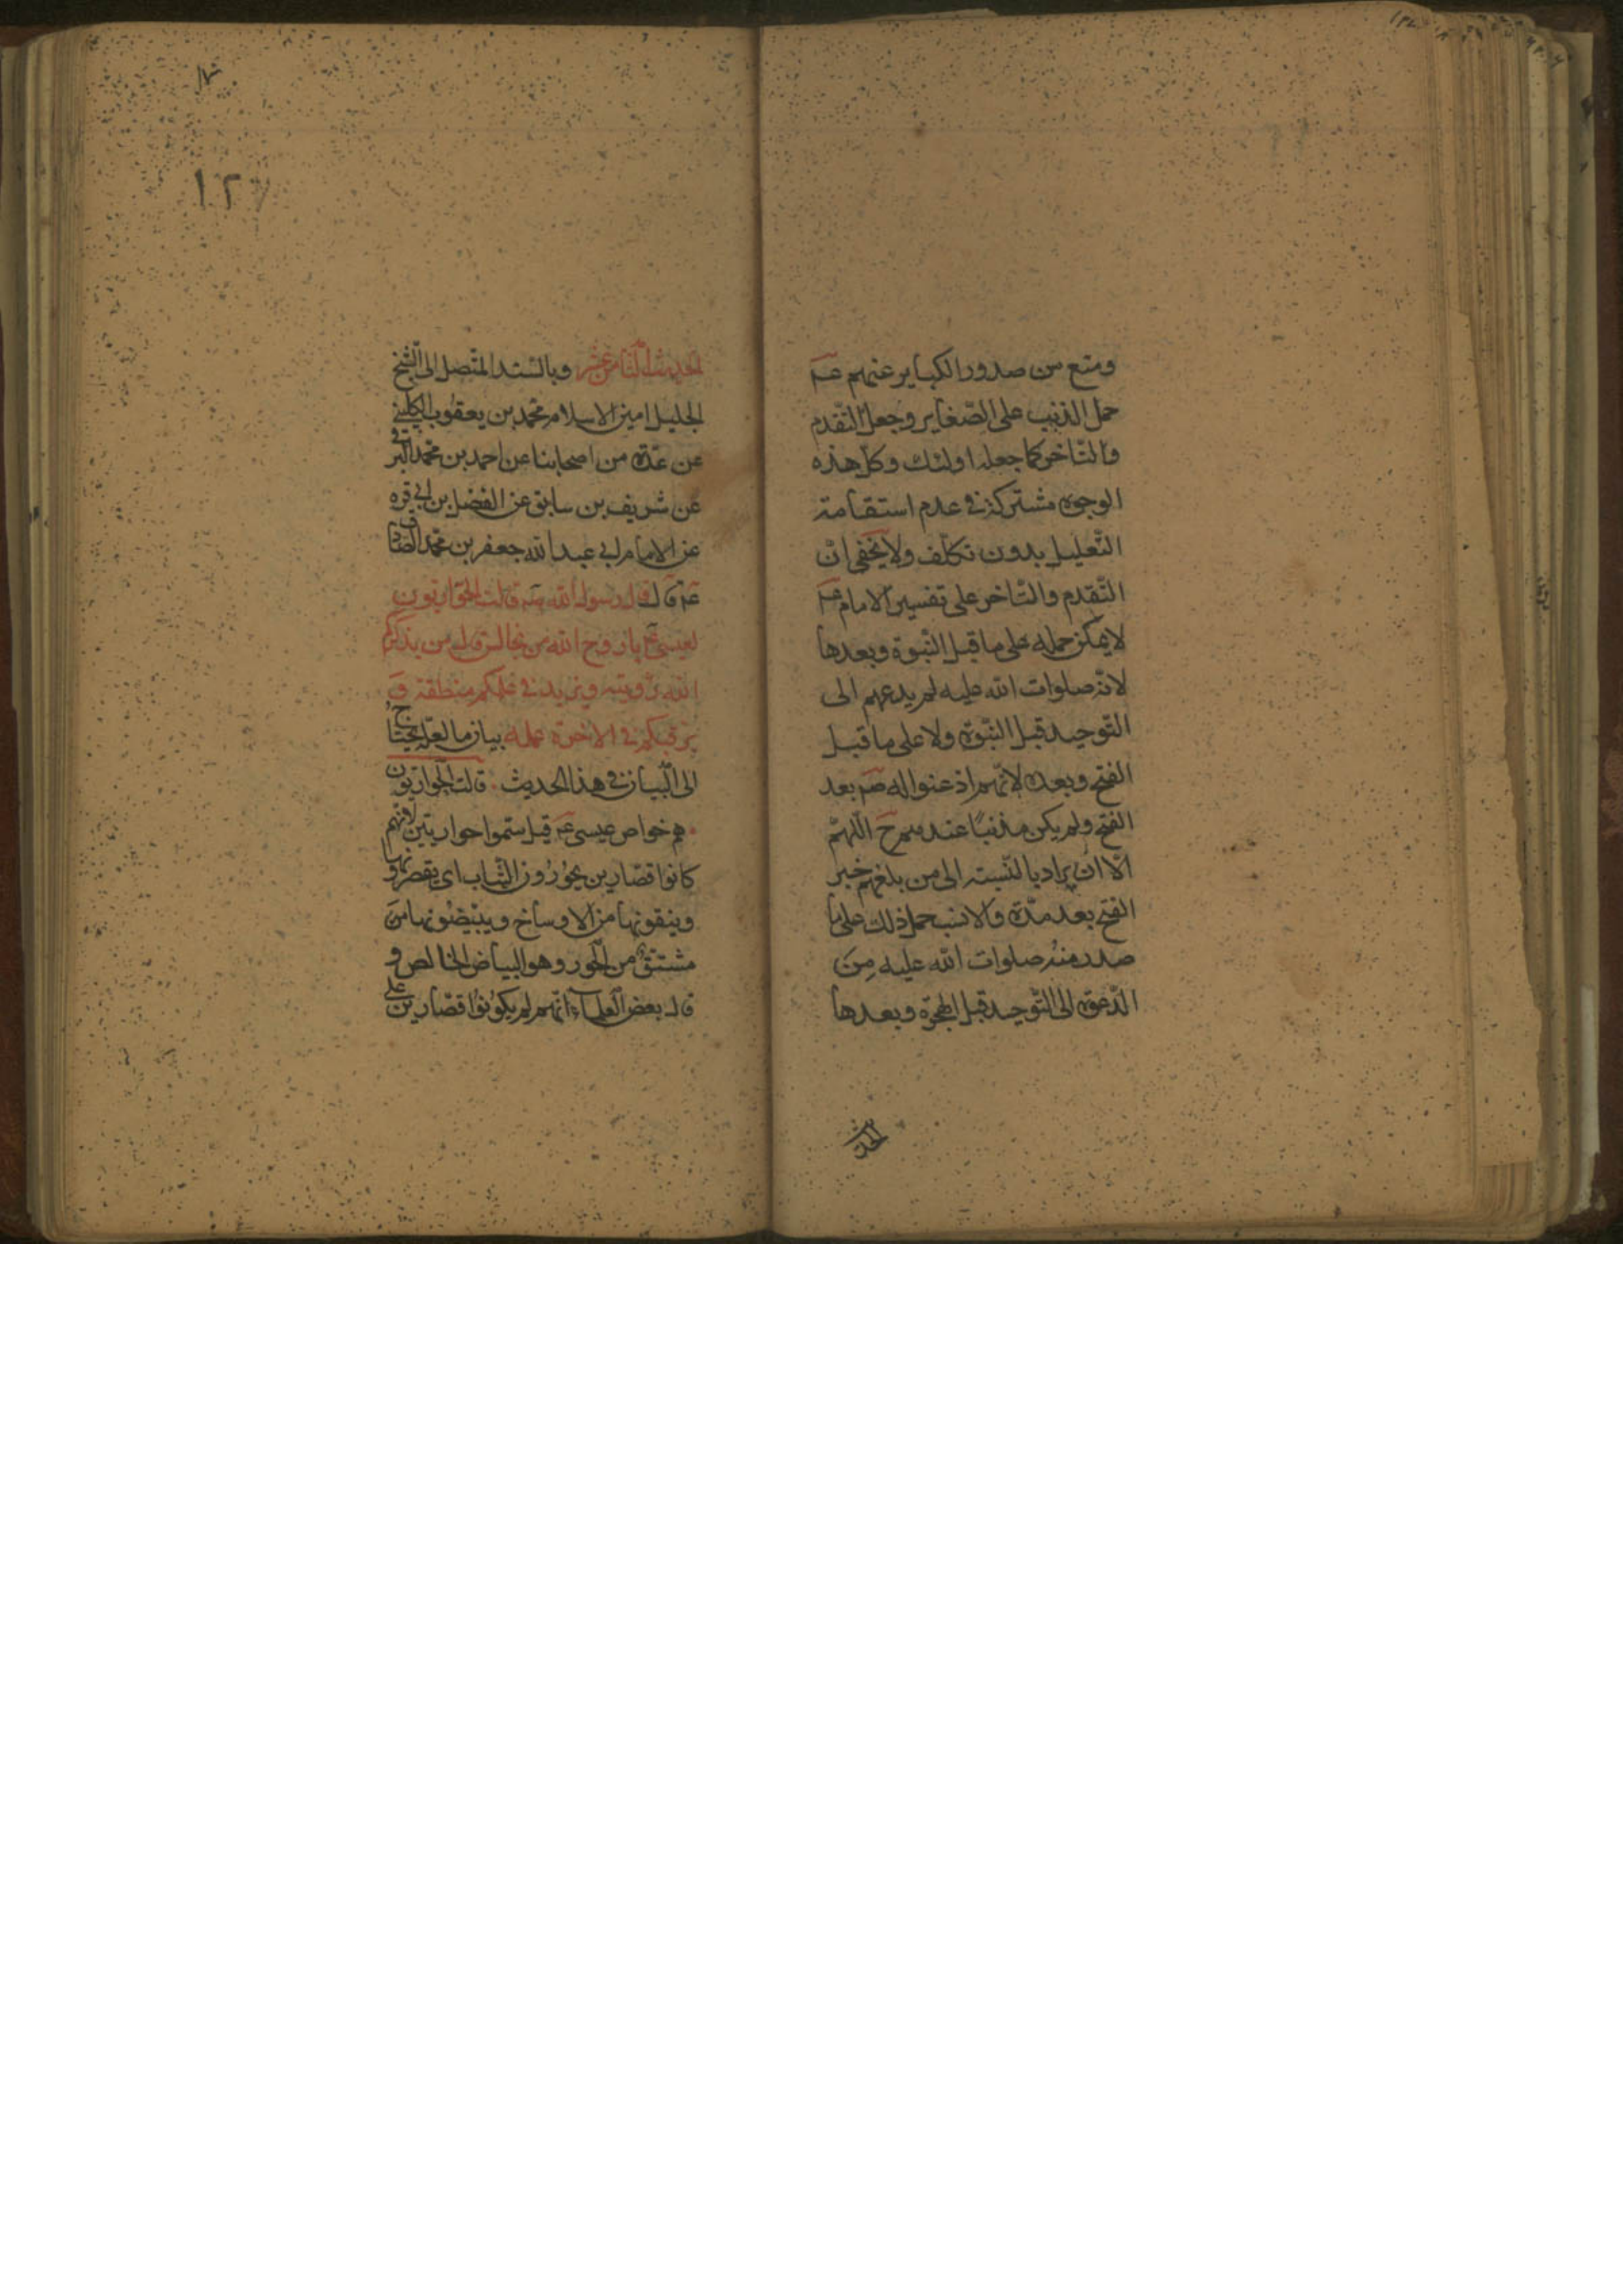 ومنع من صدور الكباير عنهم عم
حمل الذنب على الصّغاير وجعل التّقدم
والتّاخر كما جعله اولئك وكلّ هذه
الوجوه مشتركة في عدم استقامة
التّعليل بدون تكلّف ولا يخفى انّ
التّقدم والتّاخر على تفسير الامام عم
لا يمكن حمله على ما قبل النّبوة وبعدها
لانّه صلوات الله عليه لم يدعهم الى
التّوحيد قبل النّبوة ولا على ما قبل
الفتح وبعده لانّهم اذعنوا له صم بعد
الفتح ولم يكن مذنبًا عندهم ح اللّهمّ
الّا ان يراد بالنّسبة الى من بلغهم خبر
الفتح بعد مدّة والانسب حمل ذلك على ما
صدر منه صلوات الله عليه مِنَ
الدّعوة الى التّوحيد قبل الهجرة وبعدها
الحديث
١٢٧
الحديث الثّامن عشر وبالسّند المتّصل الى الشّيخ
الجليل امين الاسلام محمّد بن يعقوب الكليني
عن عدّة من اصحابنا عن احمد بن محمّد البرقي
عن شريف بن سابق عن الفضل بن ابي قره
عن الامام ابي عبد الله جعفر بن محمّد الصّادق
عم قال قال رسول الله صم قالت الحواريّون
لعيسى عم يا روح الله من نجالس قال من يذكّركم
الله رؤيته ويزيد في علمكم منطقه وَ
يرغبكم في الاخرة عمله بيان ما لعلّه يحتاج
الى البيان في هذا الحديث قالت الحواريّون
هم خواص عيسى عم قيل سمّوا حواريّين لانهم
كانوا قصّارين يحوّرون الثّياب اى يقصرونها
وينقونها من الاوساخ ويبيّضونها من
مشتقّ من الحور وهو البياض الخالص و
قال بعض العلماء انّهم لم يكونوا قصّارين على